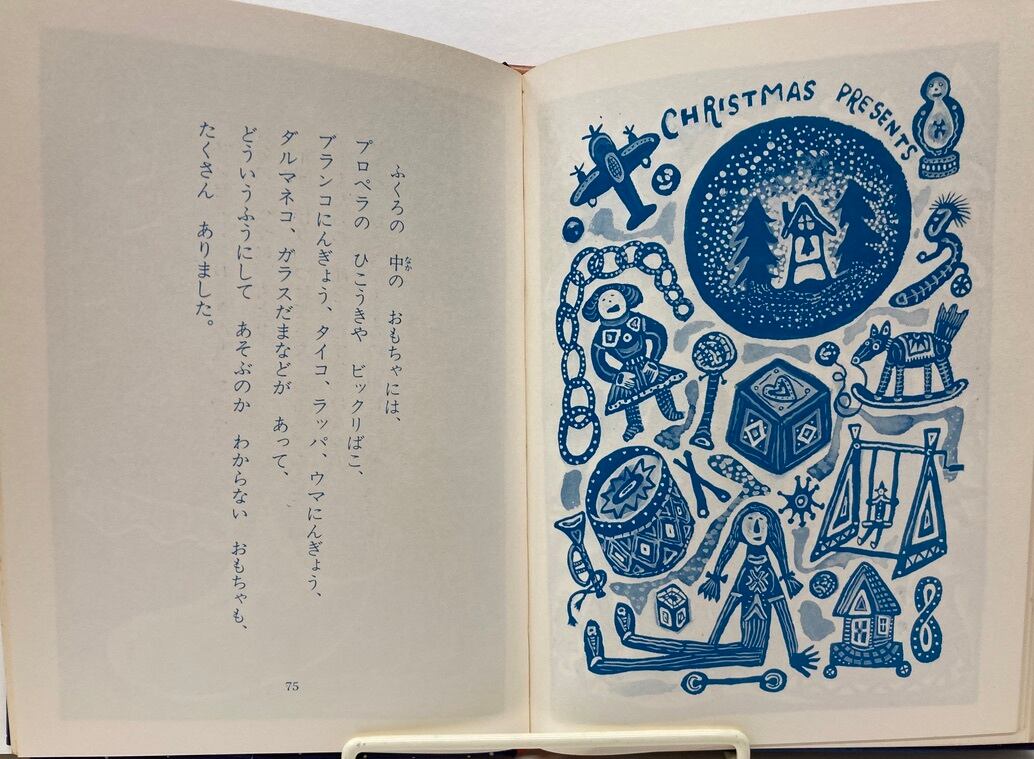 ふくろの　中の　おもちゃには、
プロペラの　ひこうきや　ビックリばこ、
ブランコにんぎょう、タイコ、ラッパ、ウマにんぎょう、
ダルマネコ、ガラスだまなどが　あって、
どういうふうにして　あそぶのか　わからない　おもちゃも、
たくさん　ありました。
75
CHRISTMAS PRESENTS